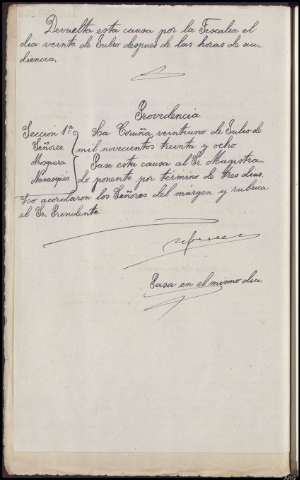 Devuelta esta causa por la Fiscalia el
dia veinte de Julio despues de las horas de au-
diencia.
Providencia
Seccion 1ª La Coruña, veintiuno de Julio de
Señores mil novecientos treinta y ocho
Mosquera Pasa esta causa al Sr. Magistra-
do ponente por término de tres dias.
Lo acordaron los Señores del márgen y rubrica
el Sr. Presidente
Pasa en el mismo dia.